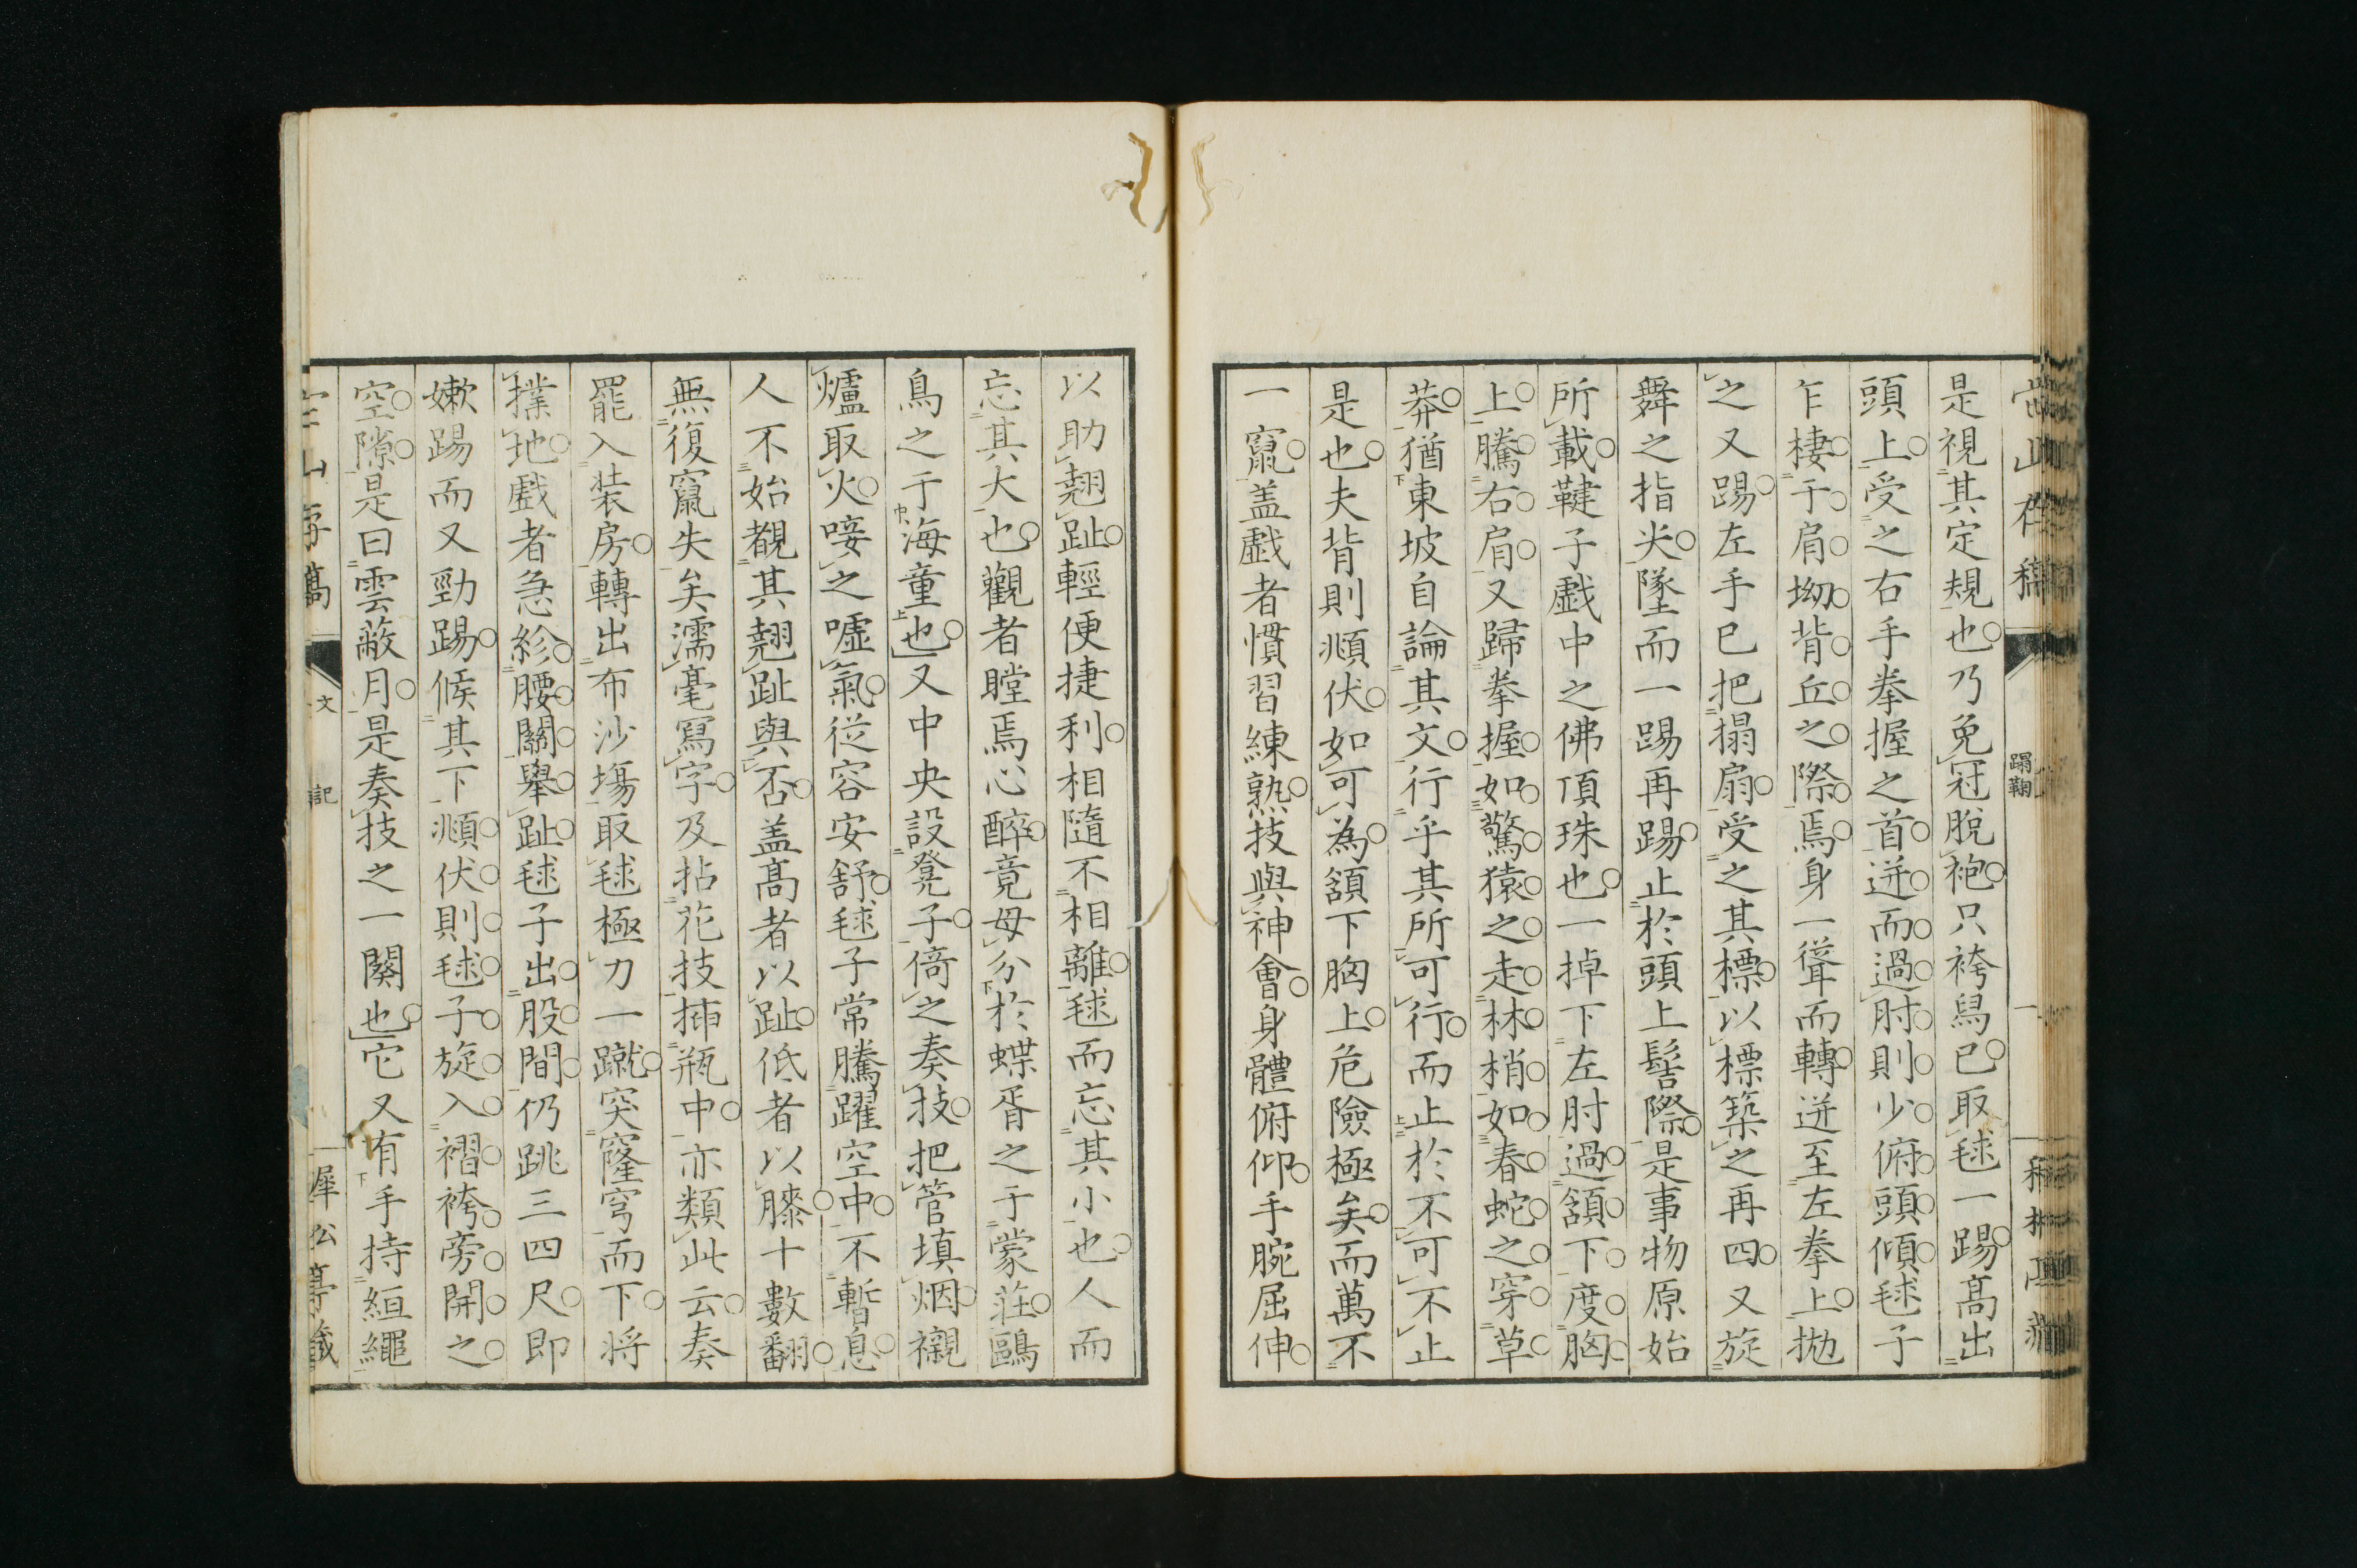 蹋鞠
一
是視其定規也乃免冠脫袍只袴舄已取毬一踢高出
頭上受之右手拳握之首迸而過肘則少俯頭傾毬子
乍棲于肩坳背丘之際焉身一聳而轉迸至左拳上拋
之又踢左手已把搨扇受之其標以標築之再四又旋
舞之指尖墜而一踢再踢止於頭上髻際是事物原始
所載鞬子戲中之佛頂珠也一掉下左肘過頷下度胸
上騰右肩又歸拳握如驚猿之走林梢如春蛇之穿草
莽猶東坡自論其文行乎其所可行而止於不可不止
是也夫背則順伏如可為頷下胸上危險極矣而萬不
一竄盖戲者慣習練熟技與神會身體俯仰手腕屈伸
以助翹趾輕便捷利相隨不相離毬而忘其小也人而
忘其大也觀者瞠焉心醉竟毋分於蝶胥之于蒙莊鷗
鳥之于海童也又中央設凳子倚之奏技把管填烟襯
爐取火唼之噓氣從容安舒毬子常騰躍空中不暫息
人不始覩其翹趾與否盖高者以趾低者以膝十數翻
無復竄失矣濡毫寫字及拈花技插瓶中亦類此云奏
罷入裝房轉出布沙塲取毬極力一蹴突窿穹而下将
撲地戲者急紾腰關舉趾毬子出股間仍跳三四尺即
嫰踢而又勁踢候其下順伏則毬子旋入褶袴旁開之
空隙是曰雲蔽月是奏技之一關也它又有手持絙繩
文
記
犀松亭藏